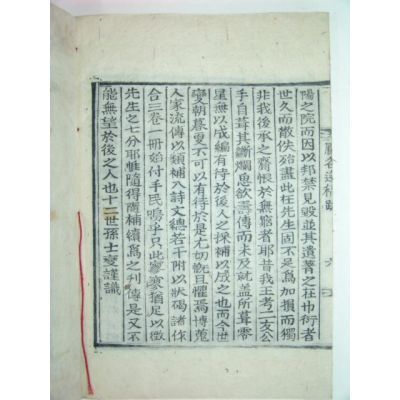 陽之院而因以邦禁見毀並其遺菁之在巾衍者
世久而散佚殆盡此在先生固不足爲加損而獨
非我後承之齎恨於無窮者耶昔我王考二友公
手自葺其斷爛思欲壽傳而未及就盖所葺零
星無以成編有待於後人之採補以成之也而今世
變朝暮更不可以有待於是尤切慨且懼焉博蒐
人家流傳以類補入詩文總若干附以狀碣諸作
合三卷一冊始付手民嗚乎只此寥寥猶足以徵
先生之七分耶惟隨得而補續爲之刊傳是又不
能無望於後之人也十二世孫士燮謹識